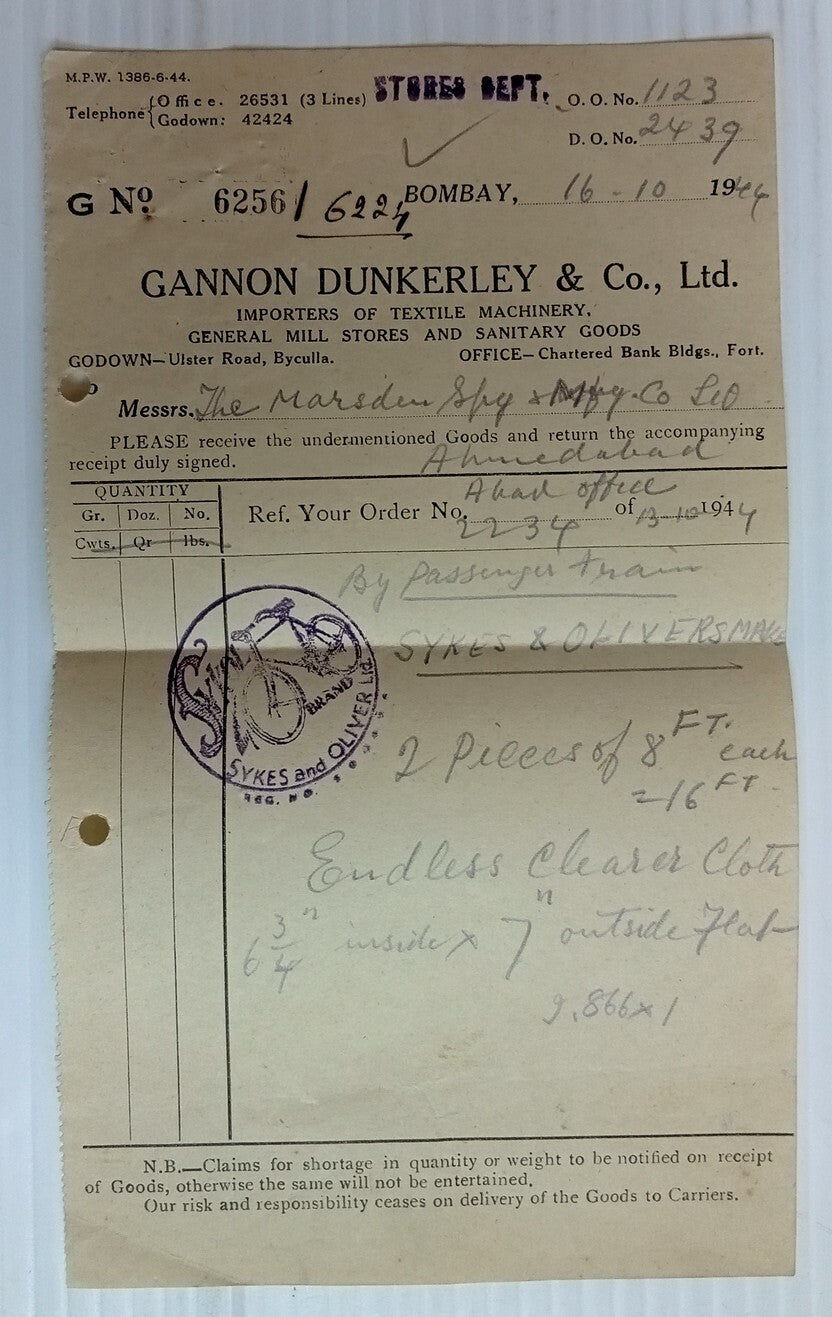 M.P.W. 1386-6-44.
STORES DEPT.
Telephone { Office. 26531 (3 Lines)
Godown: 42424
O. O. No. 1123
D. O. No. 2439
G No 6256 / 6224
BOMBAY, 16-10 1944
GANNON DUNKERLEY & Co., Ltd.
IMPORTERS OF TEXTILE MACHINERY,
GENERAL MILL STORES AND SANITARY GOODS
GODOWN—Ulster Road, Byculla. OFFICE—Chartered Bank Bldgs., Fort.
Messrs. The Marsden Spg & Mfg. Co Ltd
PLEASE receive the undermentioned Goods and return the accompanying
receipt duly signed. Ahmedabad
QUANTITY
Gr. Doz. No.
Cwts. Qr lbs.
Abad office
Ref. Your Order No. 2234 of 13-10-1944
By Passenger train
SYKES & OLIVERS MAKE
Sykol
BRAND
SYKES and OLIVER Ltd.
REG. NO.
2 Pieces of 8 FT. each
=16 FT.
Endless Clearer Cloth
6 3/4" inside x 7" outside Flat
9.866 x 1
N.B.—Claims for shortage in quantity or weight to be notified on receipt
of Goods, otherwise the same will not be entertained.
Our risk and responsibility ceases on delivery of the Goods to Carriers.